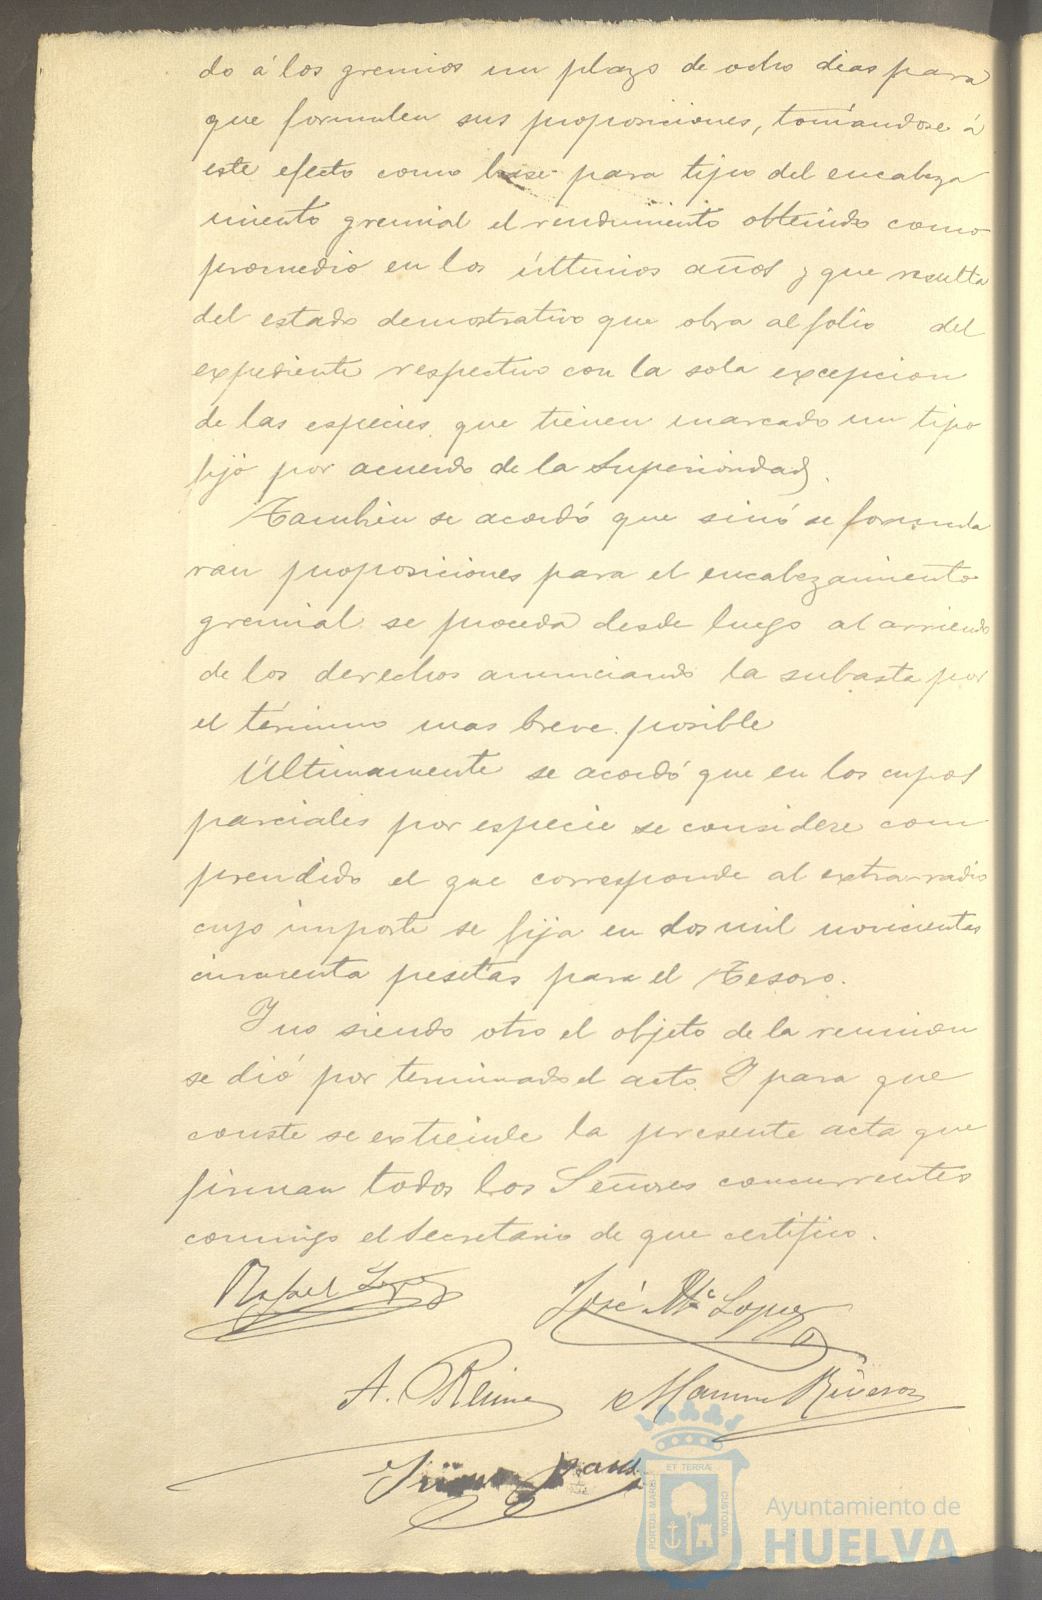 do á los gremios un plazo de ocho dias para
que formulen sus proposiciones, tomándose á
este efecto como base para tipo del encabeza
miento gremial el rendimiento obtenido como
promedio en los últimos años y que resulta
del estado demostrativo que obra al folio del
expediente respectivo con la sola excepcion
de las especies que tienen marcado un tipo
fijo por acuerdo de la Superioridad.
Tambien se acordó que sinó se formula
ran proposiciones para el encabezamiento
gremial se proceda desde luego al arriendo
de los derechos anunciando la subasta por
el término mas breve posible
Últimamente se acordó que en los cupos
parciales por especie se considere com
prendido el que corresponde al extra-radio
cuyo importe se fija en dos mil novecientas
cincuenta pesetas para el Tesoro.
Y no siendo otro el objeto de la reunion
se dió por terminado el acto. Y para que
conste se extiende la presente acta que
firman todos los Señores concurrentes
conmigo el Secretario de que certifico.
Rafael Lopez
José Mª Lopez
A. Reina
Riveros
PORTUS MARIS ET TERRA CUSTODIA
Ayuntamiento de
HUELVA